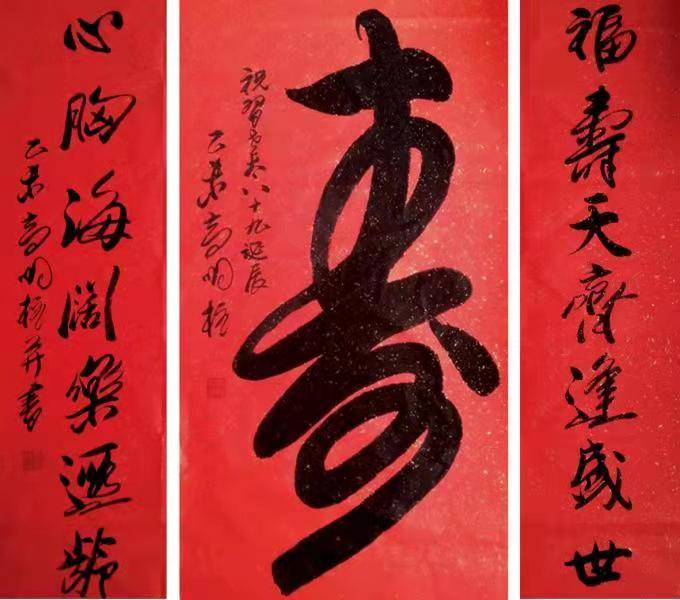 福壽天齊逢盛世
壽
祝習八十九誕辰
乙未高明
心胸海闊樂遐齡
乙未高明并書